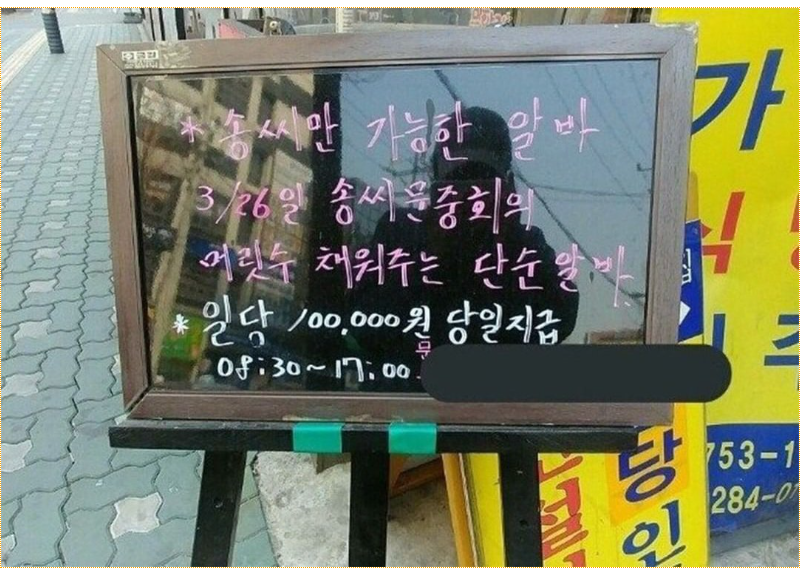 * 송씨만 가능한 알바
3/26일 송씨문중회의
머릿수 채워주는 단순알바.
* 일당 100,000원 당일지급
08:30~17:00
문
가
식
주
당
인
753-1
284-07